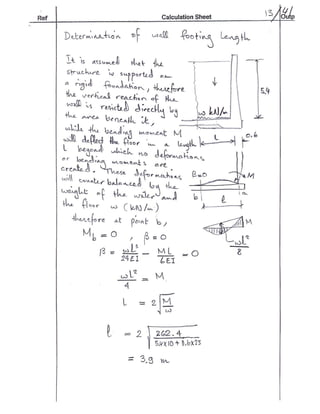 13/4/
Ref Calculation Sheet Outp
Determination of wall footing Length
It is assumed that the
structure is supported on
a rigid foundation, therefore
the vertical reaction of the
wall is resisted directly by
the area beneath it,
while the bending moment M
will deflect the floor in a length
L beyond which no deformations
or bending moments are
created. These deformations
will counter balanced by the
weight of the water and
the floor w (kN/m)
therefore at point b,
5.9
w kN/m
L
0.6
B=0
M
b
l
a
M
wL²
8
Mb = 0 , β = 0
β = wL³/24EI - ML/6EI = 0
wL²/4 = M
L = 2√M/w
l = 2 √262.4/5.4x10 + 0.6x25
= 3.9 m